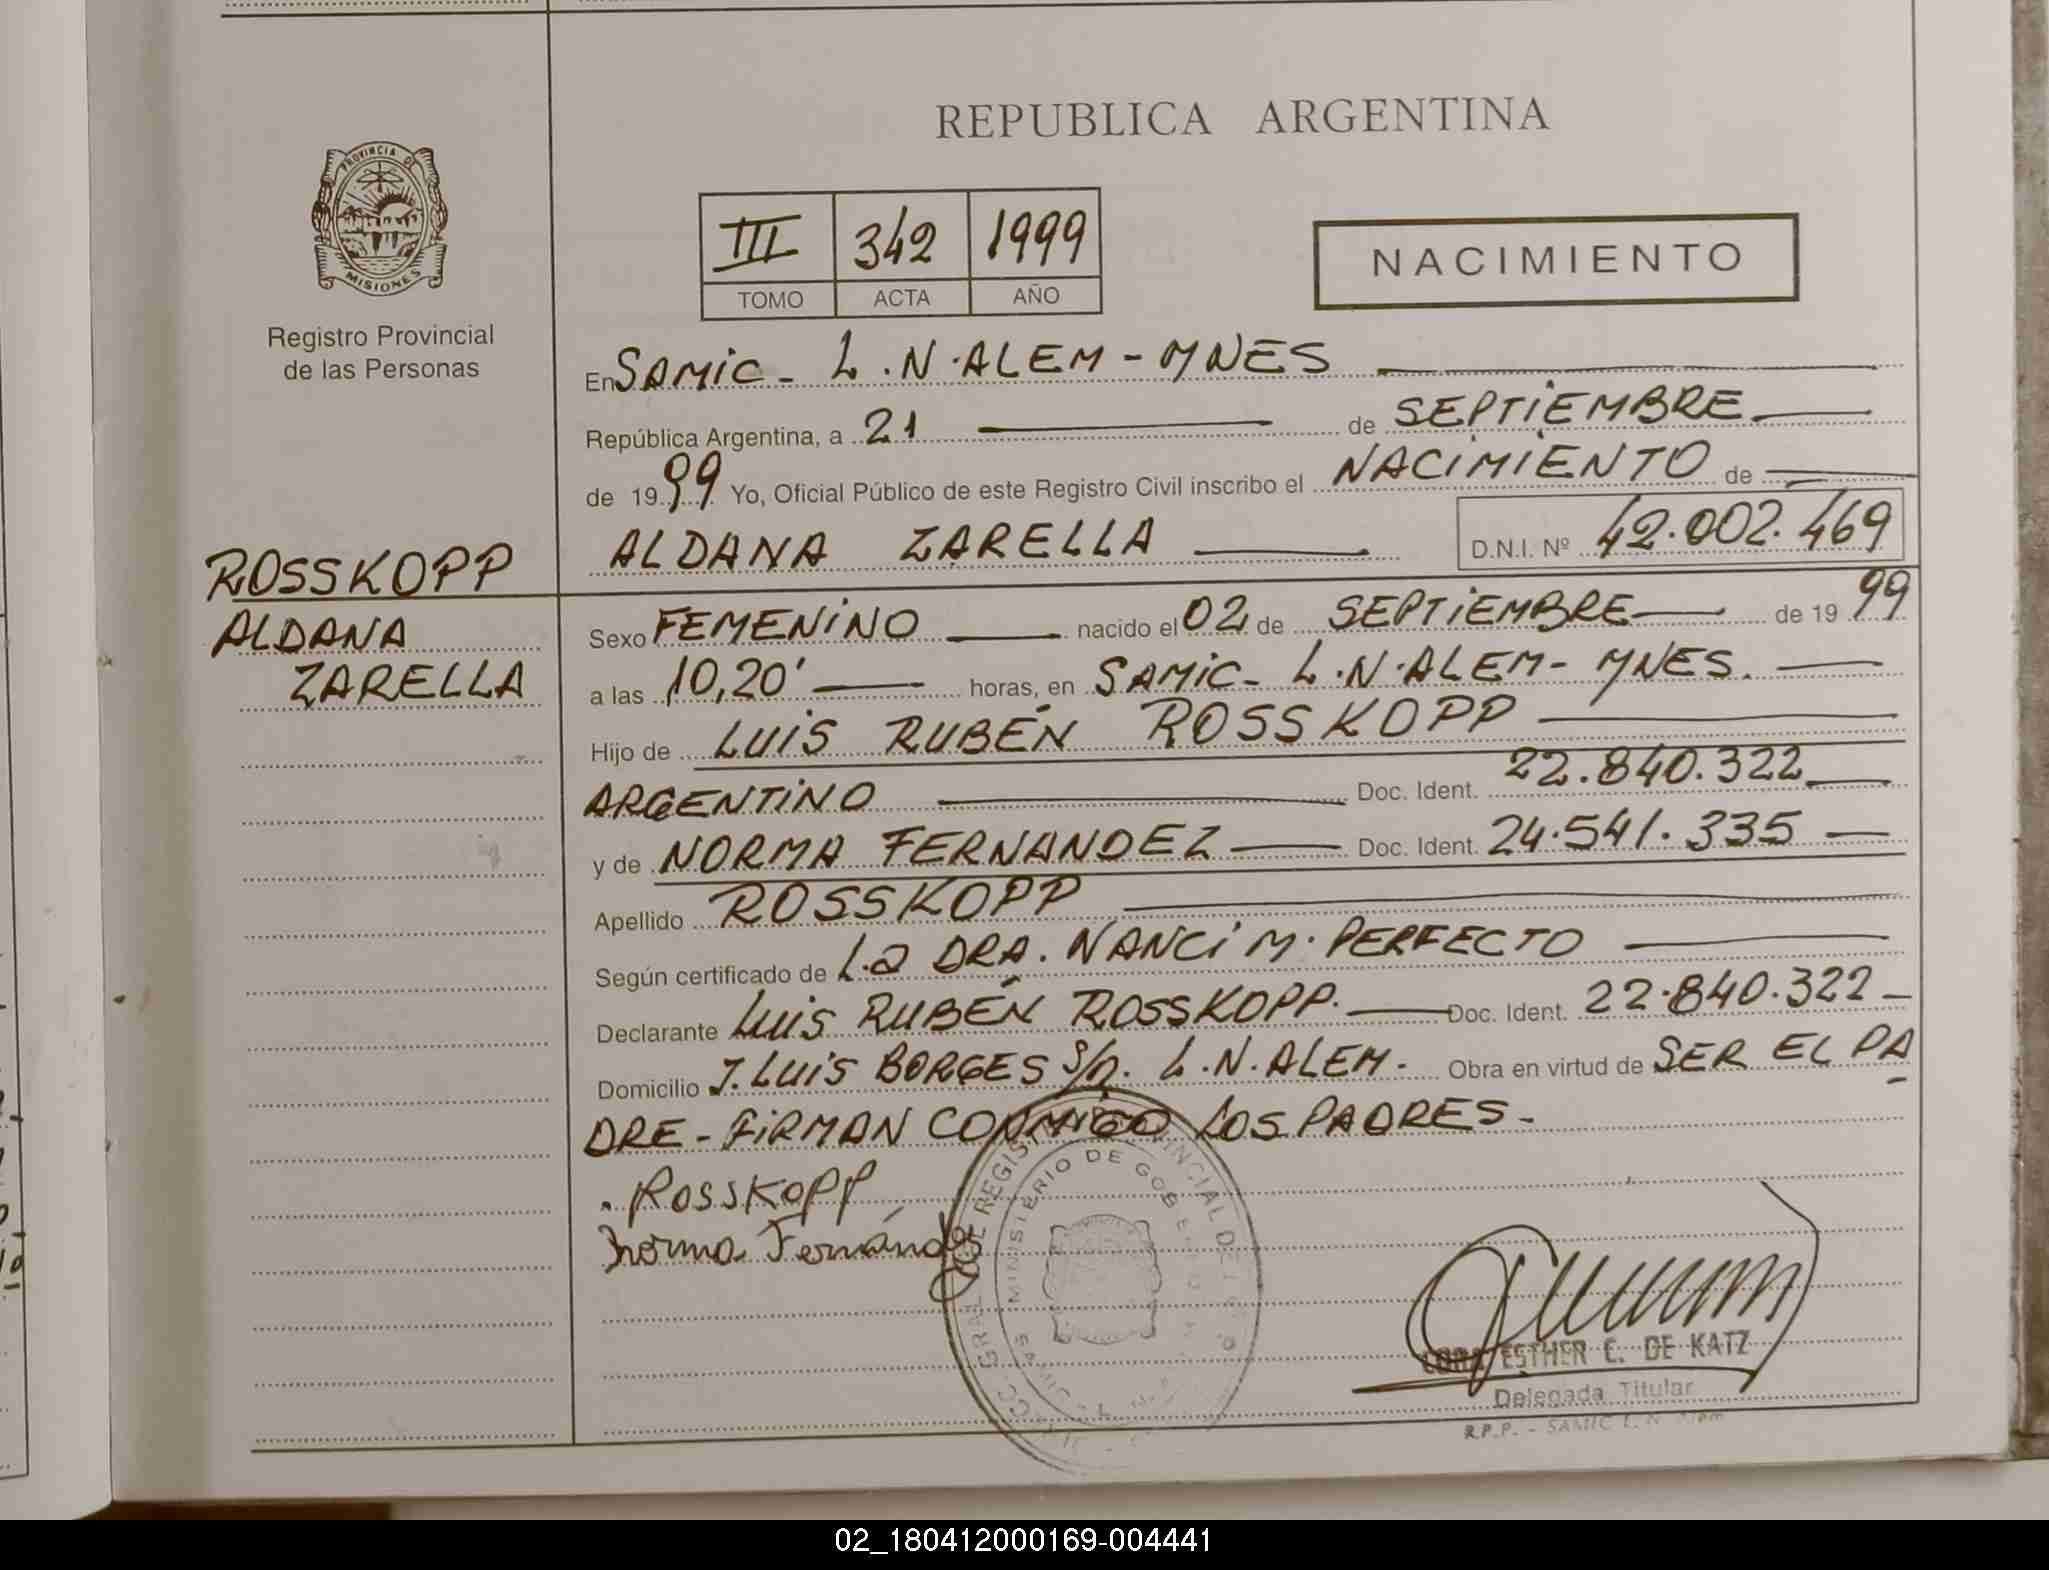 REPUBLICA ARGENTINA
PROVINCIA DE
MISIONES
Registro Provincial
de las Personas
III 342 1999
TOMO ACTA AÑO
NACIMIENTO
En SAMIC - L.N.ALEM - MNES
República Argentina, a 21 de SEPTIEMBRE
de 1999 Yo, Oficial Público de este Registro Civil inscribo el NACIMIENTO de
ALDANA ZARELLA D.N.I. Nº 42.002.469
ROSSKOPP
ALDANA
ZARELLA
Sexo FEMENINO nacido el 02 de SEPTIEMBRE de 1999
a las 10,20' horas, en SAMIC - L.N.ALEM - MNES.
Hijo de LUIS RUBÉN ROSSKOPP
ARGENTINO Doc. Ident. 22.840.322
y de NORMA FERNANDEZ Doc. Ident. 24.541.335
Apellido ROSSKOPP
Según certificado de La DRA. NANCI M. PERFECTO
Declarante LUIS RUBÉN ROSSKOPP. Doc. Ident. 22.840.322
Domicilio J. LUIS BORGES S/n. L.N.ALEM. Obra en virtud de SER EL PA
DRE - FIRMAN CONMIGO LOS PADRES -
ROSSKOPP
Norma Fernández
MINISTERIO DE GOB
ESTHER C. DE KATZ
Delegada Titular
R.P.P. - SAMIC L. N. Alem
02_180412000169-004441